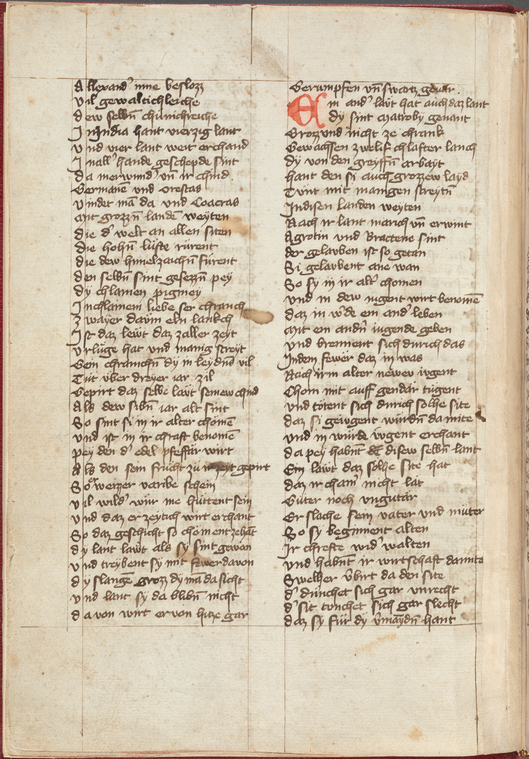 Allexand' inne beslozz
Vil gewaltichleiche
dew selbñ chunichreiche
In India hant vierzig lant
und vier lant weit erchand
In all' hande geschepde sint
da merwind' uñ ir chind
Germanie und Orestas
Vindet mã da und Coacras
ant grozzñ landẽ weyten
die d' welt an allen siten
die hohñ lufte rürent
die dew himelzaichñ fürent
den selbñ sint gesezzñ pey
dy chlainen pigmey
In chlainem liebe ser chranch
Zwayer dawm eln lankch
Ist daz lewt daz zaller zeyt
urlüge hat und manig streyt
Gein chranichñ dy in leydñ vil
Tüt über dreyer iar zil
Gepirt daz selbe läwt seinew chind
Als dew sibñ iar alt sint
So sint sy in ir alter chomẽ
und ist in ir chraft benomẽ
pey den d' edl pfeffür wirt
Als den sein frucht zu gepirt
So weizzer varibe schein
Vil wild' wür me hüttent sein
und daz er zeytich wirt erchant
So daz geschicht so choment zehãt
dy lant läwt als sy sint gewon
und treybent sy mit fewer davon
dy slangẽ groz dy mã da sicht
und lant sy da blibñ nicht
da von wirt er von hitze gar
Gerümpfen uñ swartz gevar.
Ein and' läwt hat auch daz lant
dy sint Matroby genant
Groz und nicht ze chrank
Gewachsen zwelif chlafter lanch
dy von den greyffñ arbayt
hant den si auch grozzew layd
Tünt mit manigen streytñ
Indisen landen weyten
Nach ir lant march uñ erwint
Agrotin und Bractene sint
der gelauben ist so getan
Si gelaubent ane wan
So sy in ir alt' chomen
und in dew iugent wirt benomẽ
daz in w'de ein and' leben
ant ein andñ iugende geben
und brennent sich durich das
Inden fewer daz in was
Nach irm alter newew iugent
Chom mit auff gendär tugent
und tötent sich durich solhe site
daz si geiugent würdñ da mite
und in würde iugent erchant
da pey habnt dẽ disew selbñ lant
Ein läwt daz solhe site hat
daz ir chain' nicht lat
Güter noch ungütär
Er slache sein vater und müter
So sy beginnent alten
Ir chrefte wid' walten
und habnt ir wirtschaft damite
Swelher übirt da den site
d' dunchet sich gar unrecht
d' sit tunchet sich gar slecht
daz sy für dy hant